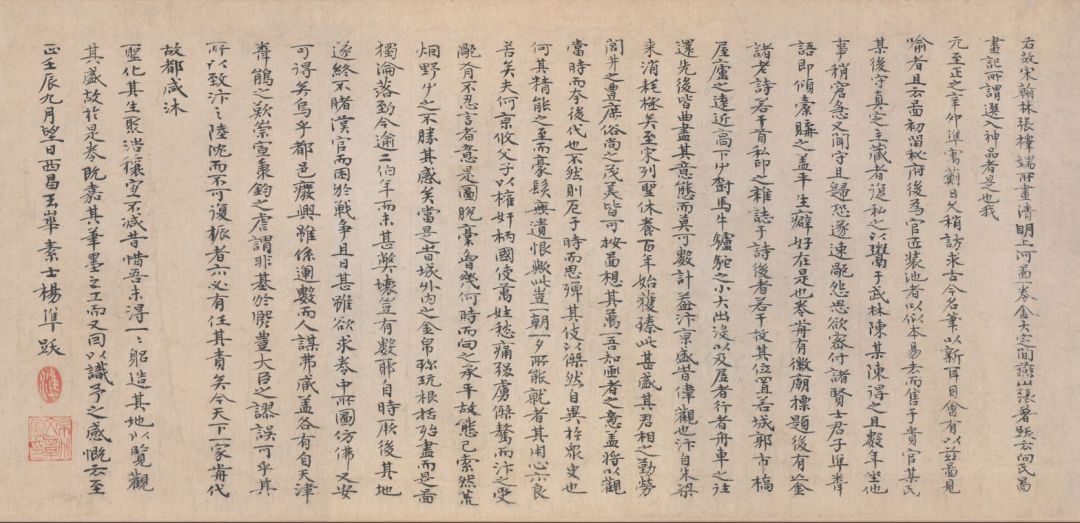 右故宋翰林張擇端所畫清明上河圖一卷金大定間燕山張著跋云向氏圖
畫記所謂選入神品者是也我
元至正之辛卯準寓薊日久稍訪求古今名筆以新耳目會有以茲啚見
喻者且云啚初留秘府後為官匠裝池者以似本易去而售于貴官某氏
某後守真定主藏者復私之以鬻于武林陳某陳得之且數年坐他
事稍窘急又聞守且歸恐遂速禍怨思欲密付諸賢士君子準聞
語即傾橐購之盖平生癖好在是也卷前有徽廟標題後有亡金
諸老詩若干首私印之雜誌于詩後者若干枚其位置若城郭市橋
屋廬之遠近高下草樹馬牛驢駝之小大出沒以及居者行者舟車之往
還先後皆曲盡其意態而莫可數計盖汴京盛時偉觀也汴自朱梁
來消耗極矣至宋列聖休養百年始獲臻此甚盛其君相之勤勞
閭井之豊庶俗尚之茂美皆可按啚想其萬一吾知画者之意盖將以觀
當時而今後代也不然則厄于時而思殫其伎以傑然自異於衆史也
何其精能之至而豪髮無遺恨歟此豈一朝一夕所能就者其用心亦良
苦矣夫何京攸父子以權奸柄國使萬姓愁痛強虜傑驁而汴之受
禍有不忍言者意是圖脫藁曾幾何時而向之承平故態已索然荒
烟野草之不勝其感矣當是時城外內之金帛珎玩根括殆盡而是啚
獨淪落致今逾二伯年而未甚弊壞豈有數耶自時厥後其地
遂終不睹漢官而困於戰爭且日甚雖欲求卷中所圖彷彿又安
可得矣烏乎都邑廢興雖係運數而人謀弗臧盖各有自天津
聞鵑之歎崇宣秉鈞之虐謂非基於熈豊大臣之謬誤可乎其
所以致汴之陸沉而不可復振者亦必有任其責矣今天下一家前代
故都咸沐
聖化其生聚浩穰宜不減昔惜吾未得一一躬造其地以覽觀
其盛故於是卷既嘉其筆墨之工而又因以識予之感慨云至
正壬辰九月望日西昌玉華素士楊準跋